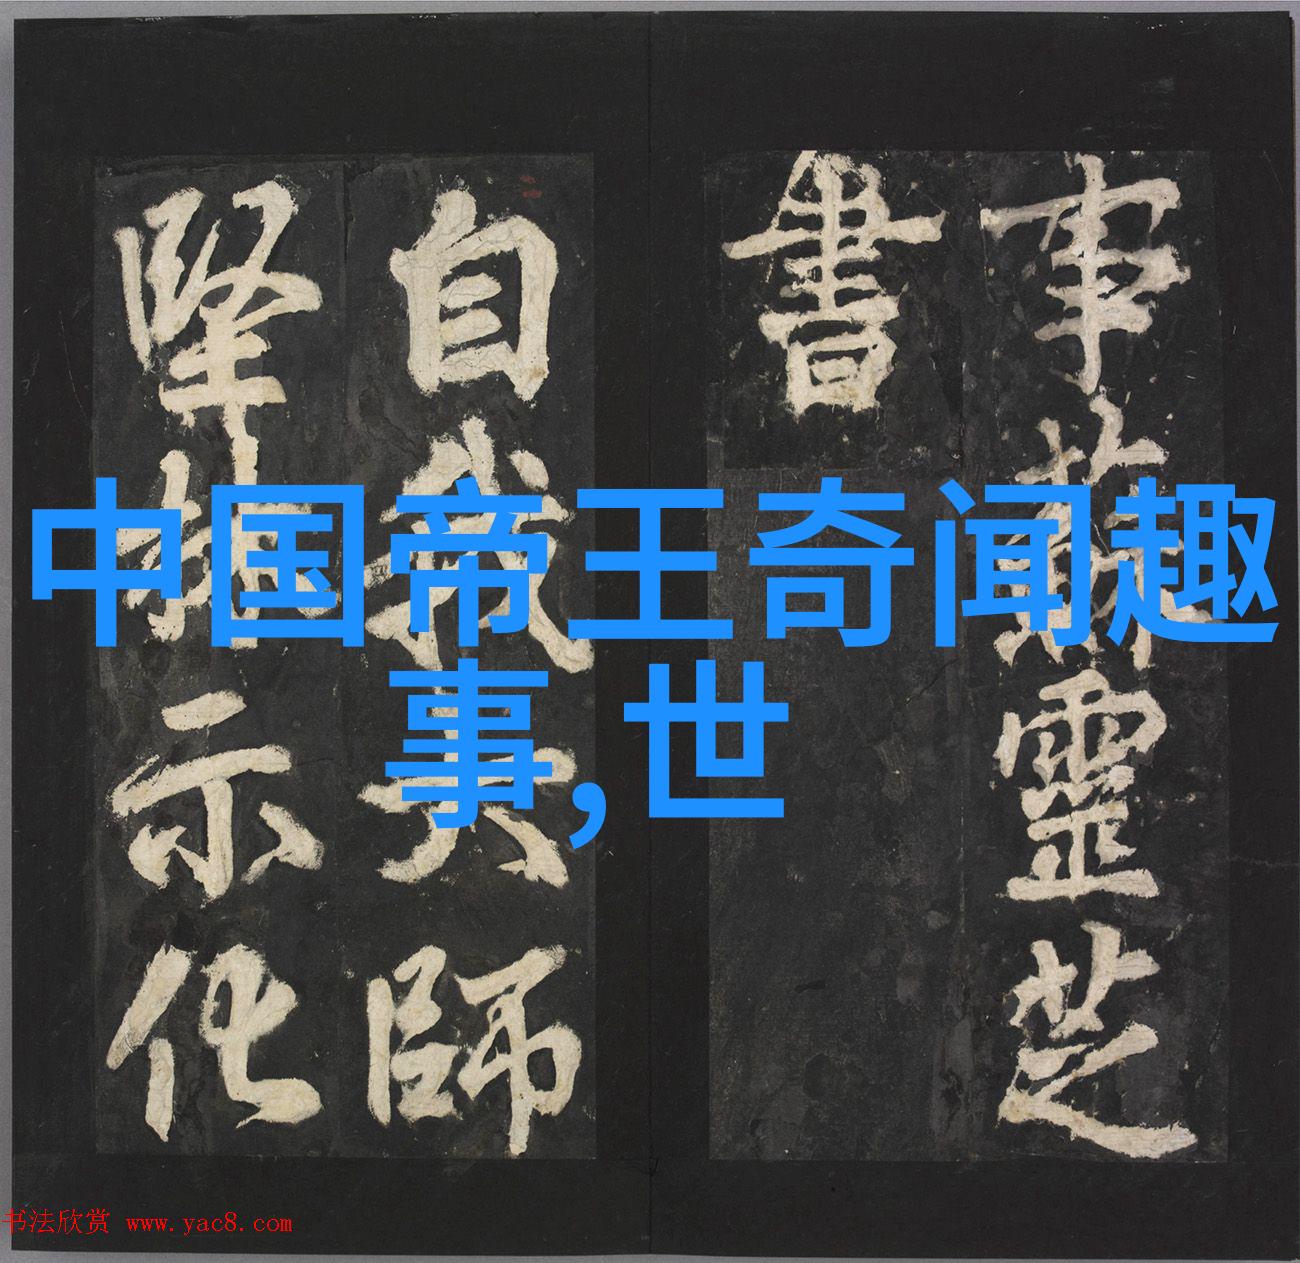 中国帝王奇闻趣
事,世
事蘇靈芝
書
自我大師
堅拆示化
书法欣赏 www.yac8.com